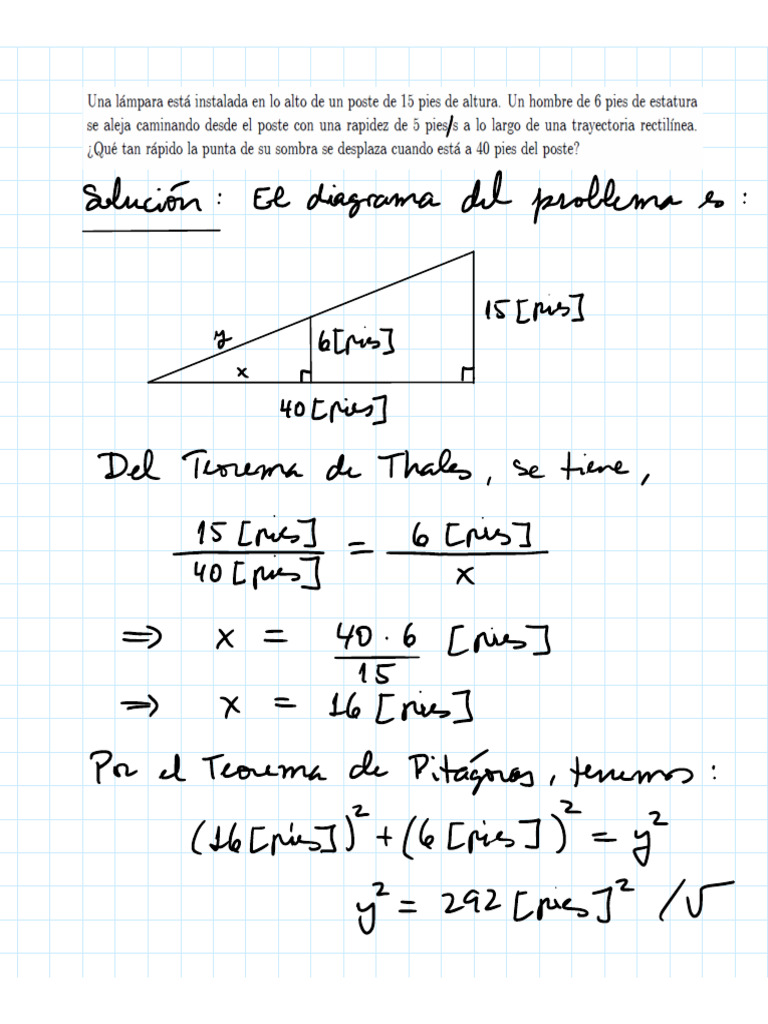 Una lámpara está instalada en lo alto de un poste de 15 pies de altura. Un hombre de 6 pies de estatura
se aleja caminando desde el poste con una rapidez de 5 pies/s a lo largo de una trayectoria rectilínea.
¿Qué tan rápido la punta de su sombra se desplaza cuando está a 40 pies del poste?
Solución: El diagrama del problema es:
15 [pies]
y 6 [pies]
x
40 [pies]
Del Teorema de Thales, se tiene,
15 [pies] / 40 [pies] = 6 [pies] / x
⇒ x = 40 · 6 / 15 [pies]
⇒ x = 16 [pies]
Por el Teorema de Pitágoras, tenemos:
(16 [pies])² + (6 [pies])² = y²
y² = 292 [pies]² /√